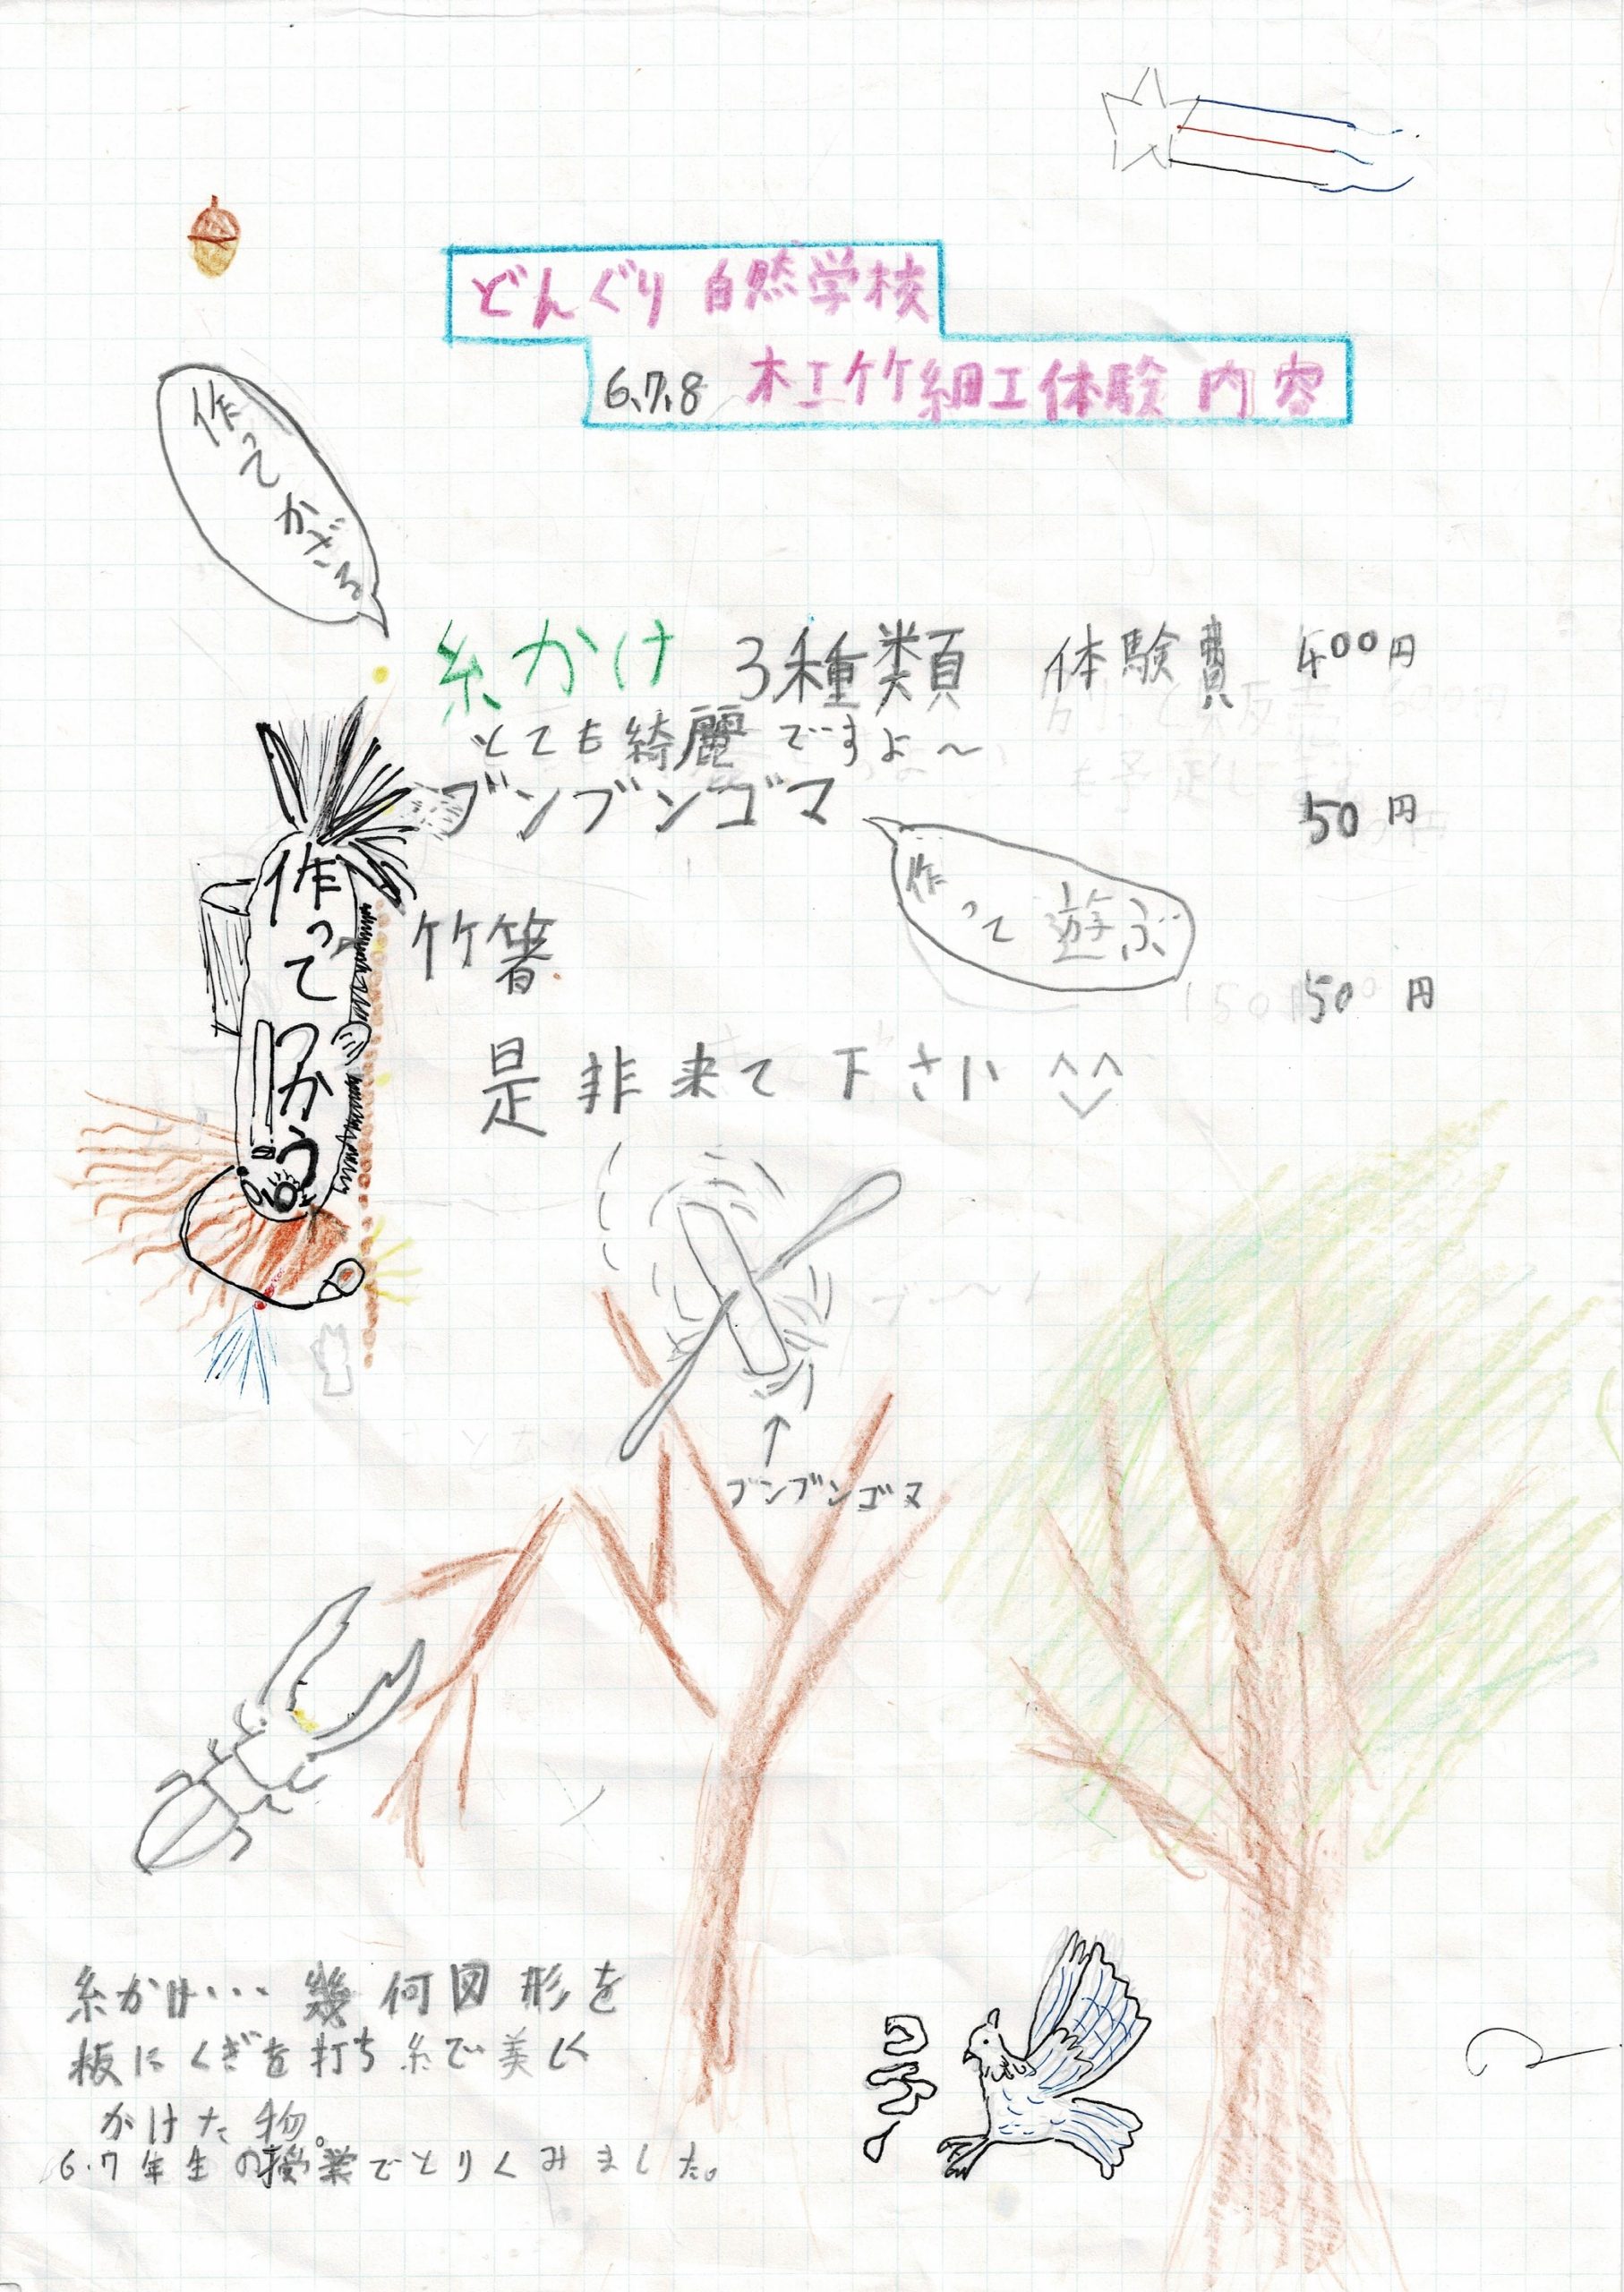 どんぐり自然学校
6.7.8 木工竹細工体験 内容
作ってかざる
糸かけ 3種類 体験費 400円
とても綺麗ですよ〜
ブンブンゴマ 50円
作って遊ぶ
作ってつかう
竹箸 50円
是非来て下さい ^^
ブンブンゴマ
糸かけ… 幾何図形を
板にくぎを打ち糸で美しく
かけた物。
6.7年生の授業でとりくみました。